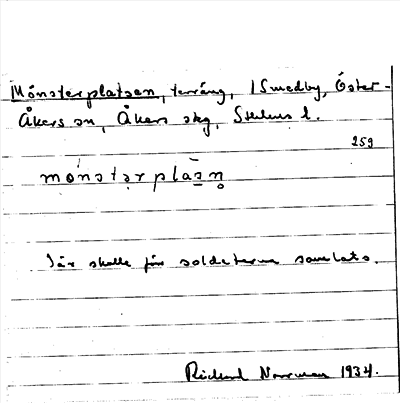 Mönsterplatsen, terräng, i Smedby, Öster-
Åkers sn, Åkers skg, Sthlms l.
259
mónstərplasn̥
Där skulle förr soldaterna samlats.
Richard Norrman 1934.